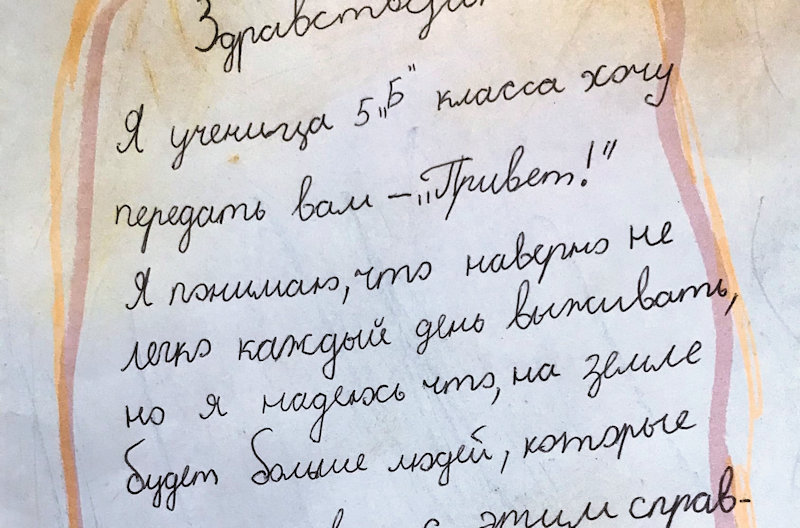 Я ученица 5 „Б“ класса хочу
передать вам – „Привет!”
Я понимаю, что наверно не
легко каждый день выживать,
но я надеюсь что, на земле
будет больше людей, которые
этим справ-